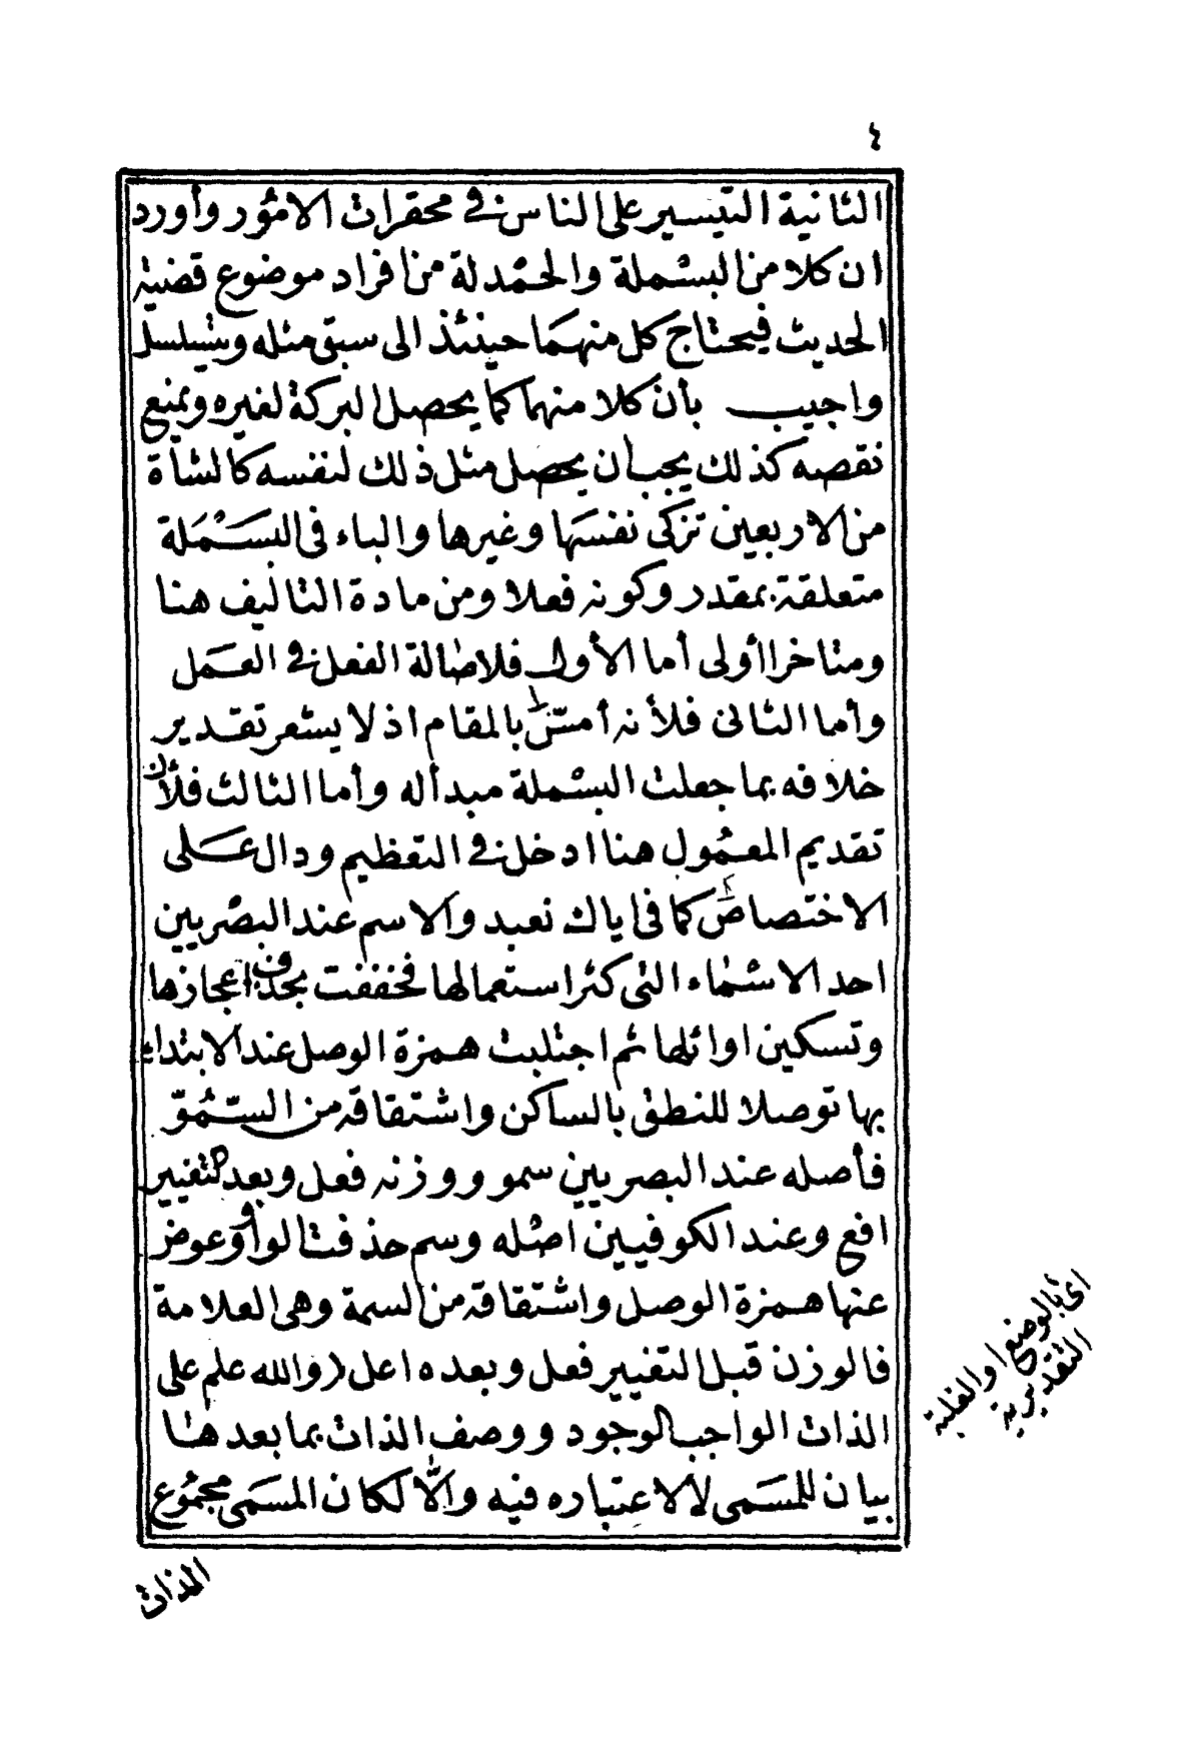 ٤
الثانية التيسير على الناس في محقرات الامور وأورد
ان كلا من البسملة والحمدلة من افراد موضوع قضية
الحديث فيحتاج كل منهما حينئذ الى سبق مثله ويتسلسل
واجيب بأن كلا منهما كما يحصل البركة لغيره ويمنع
نقصه كذلك يجب أن يحصل مثل ذلك لنفسه كالشاة
من الاربعين تزكى نفسها وغيرها والباء في البسملة
متعلقة بمقدر وكونه فعلا ومن مادة التاليف هنا
ومتاخرا أولى أما الأول فلاصالة الفعل في العمل
وأما الثانى فلأنه أمس بالمقام اذ لا يشعر تقدير
خلافه بما جعلت البسملة مبدأ له وأما الثالث فلأن
تقديم المعمول هنا ادخل في التعظيم ودال على
الاختصاص كما في اياك نعبد والاسم عند البصريين
احد الاسماء التى كثر استعمالها فخففت بحذف اعجازها
وتسكين اوائلها ثم اجتلبت همزة الوصل عند الابتداء
بها توصلا للنطق بالساكن واشتقاقه من السمو
فأصله عند البصريين سمو ووزنه فعل وبعد التغيير
افع وعند الكوفيين اصله وسم حذفت الواو وعوض
عنها همزة الوصل واشتقاقه من السمة وهى العلامة
فالوزن قبل التغيير فعل وبعده اعل (والله علم على
الذات الواجب الوجود ووصف الذات بما بعدها
بيان للمسمى لا لاعتباره فيه والا لكان المسمى مجموع
الذات
اى بالوضع او الغلبة
التقديرية